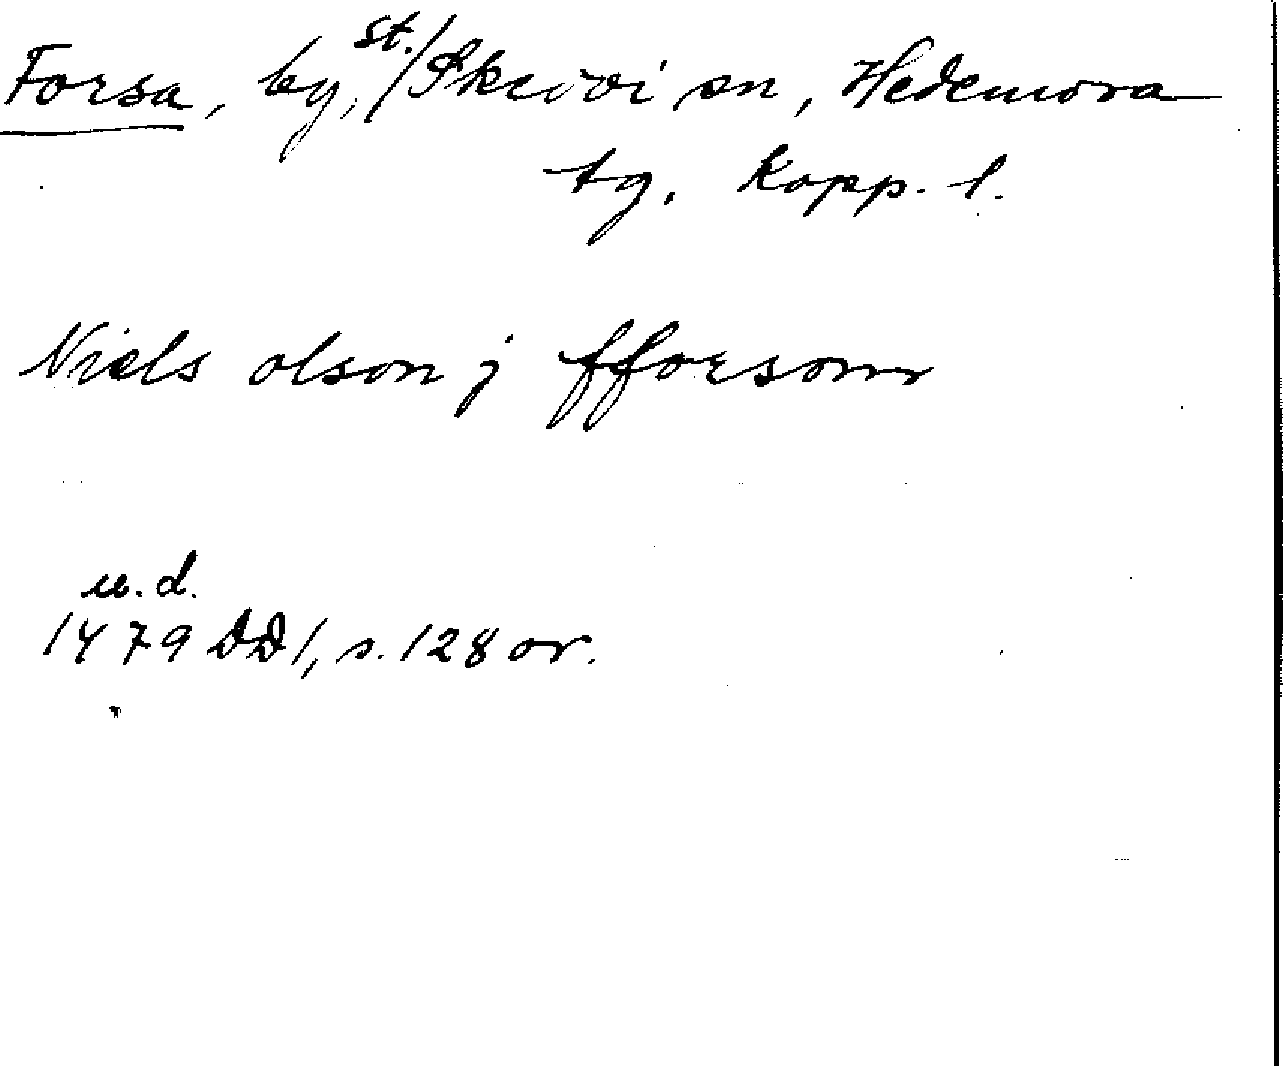 Forsa, by, St. Skedvi sn, Hedemora
tg. Kopp. l.
Niels olson j fforsom
u.d.
1479 DD 1, s. 128 or.